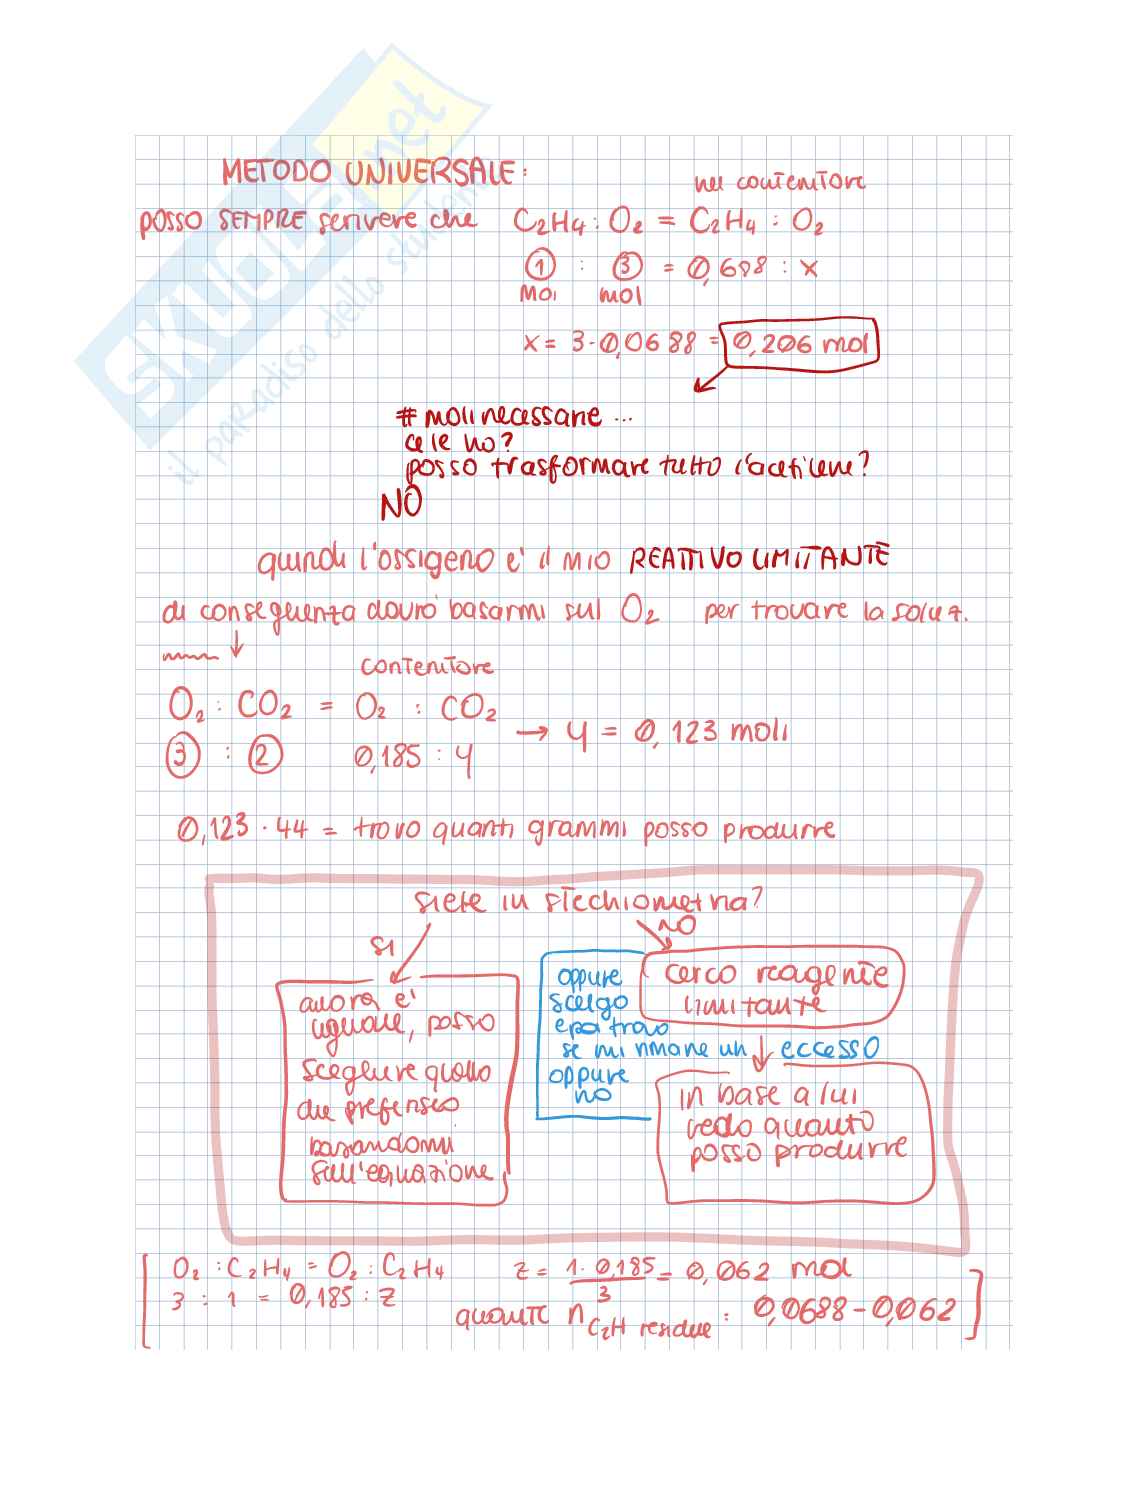 SKUOLA.net
il paradiso dello studente
METODO UNIVERSALE:
nel contenitore
posso SEMPRE scrivere che C₂H₄ : O₂ = C₂H₄ : O₂
1 : 3 = 0,688 : x
mol mol
x = 3 · 0,0688 = 0,206 mol
# moli necessarie ...
ce le ho?
posso trasformare tutto l'acetilene?
NO
quindi l'ossigeno e' il mio REATTIVO LIMITANTE
di conseguenza dovro' basarmi sul O₂ per trovare la soluz.
contenitore
O₂ : CO₂ = O₂ : CO₂
→ y = 0,123 moli
3 : 2 0,185 : y
0,123 · 44 = trovo quanti grammi posso produrre
siete in stechiometria?
SI
NO
allora e'
uguale, posso
scegliere quello
che preferisco
basandomi
sull'equazione
oppure
scelgo
e poi trovo
se mi rimane un eccesso
oppure
no
cerco reagente
limitante
in base a lui
vedo quanto
posso produrre
O₂ : C₂H₄ = O₂ : C₂H₄
3 : 1 = 0,185 : z
z = 1 · 0,185 / 3 = 0,062 mol
quante n C₂H residue : 0,0688 - 0,062